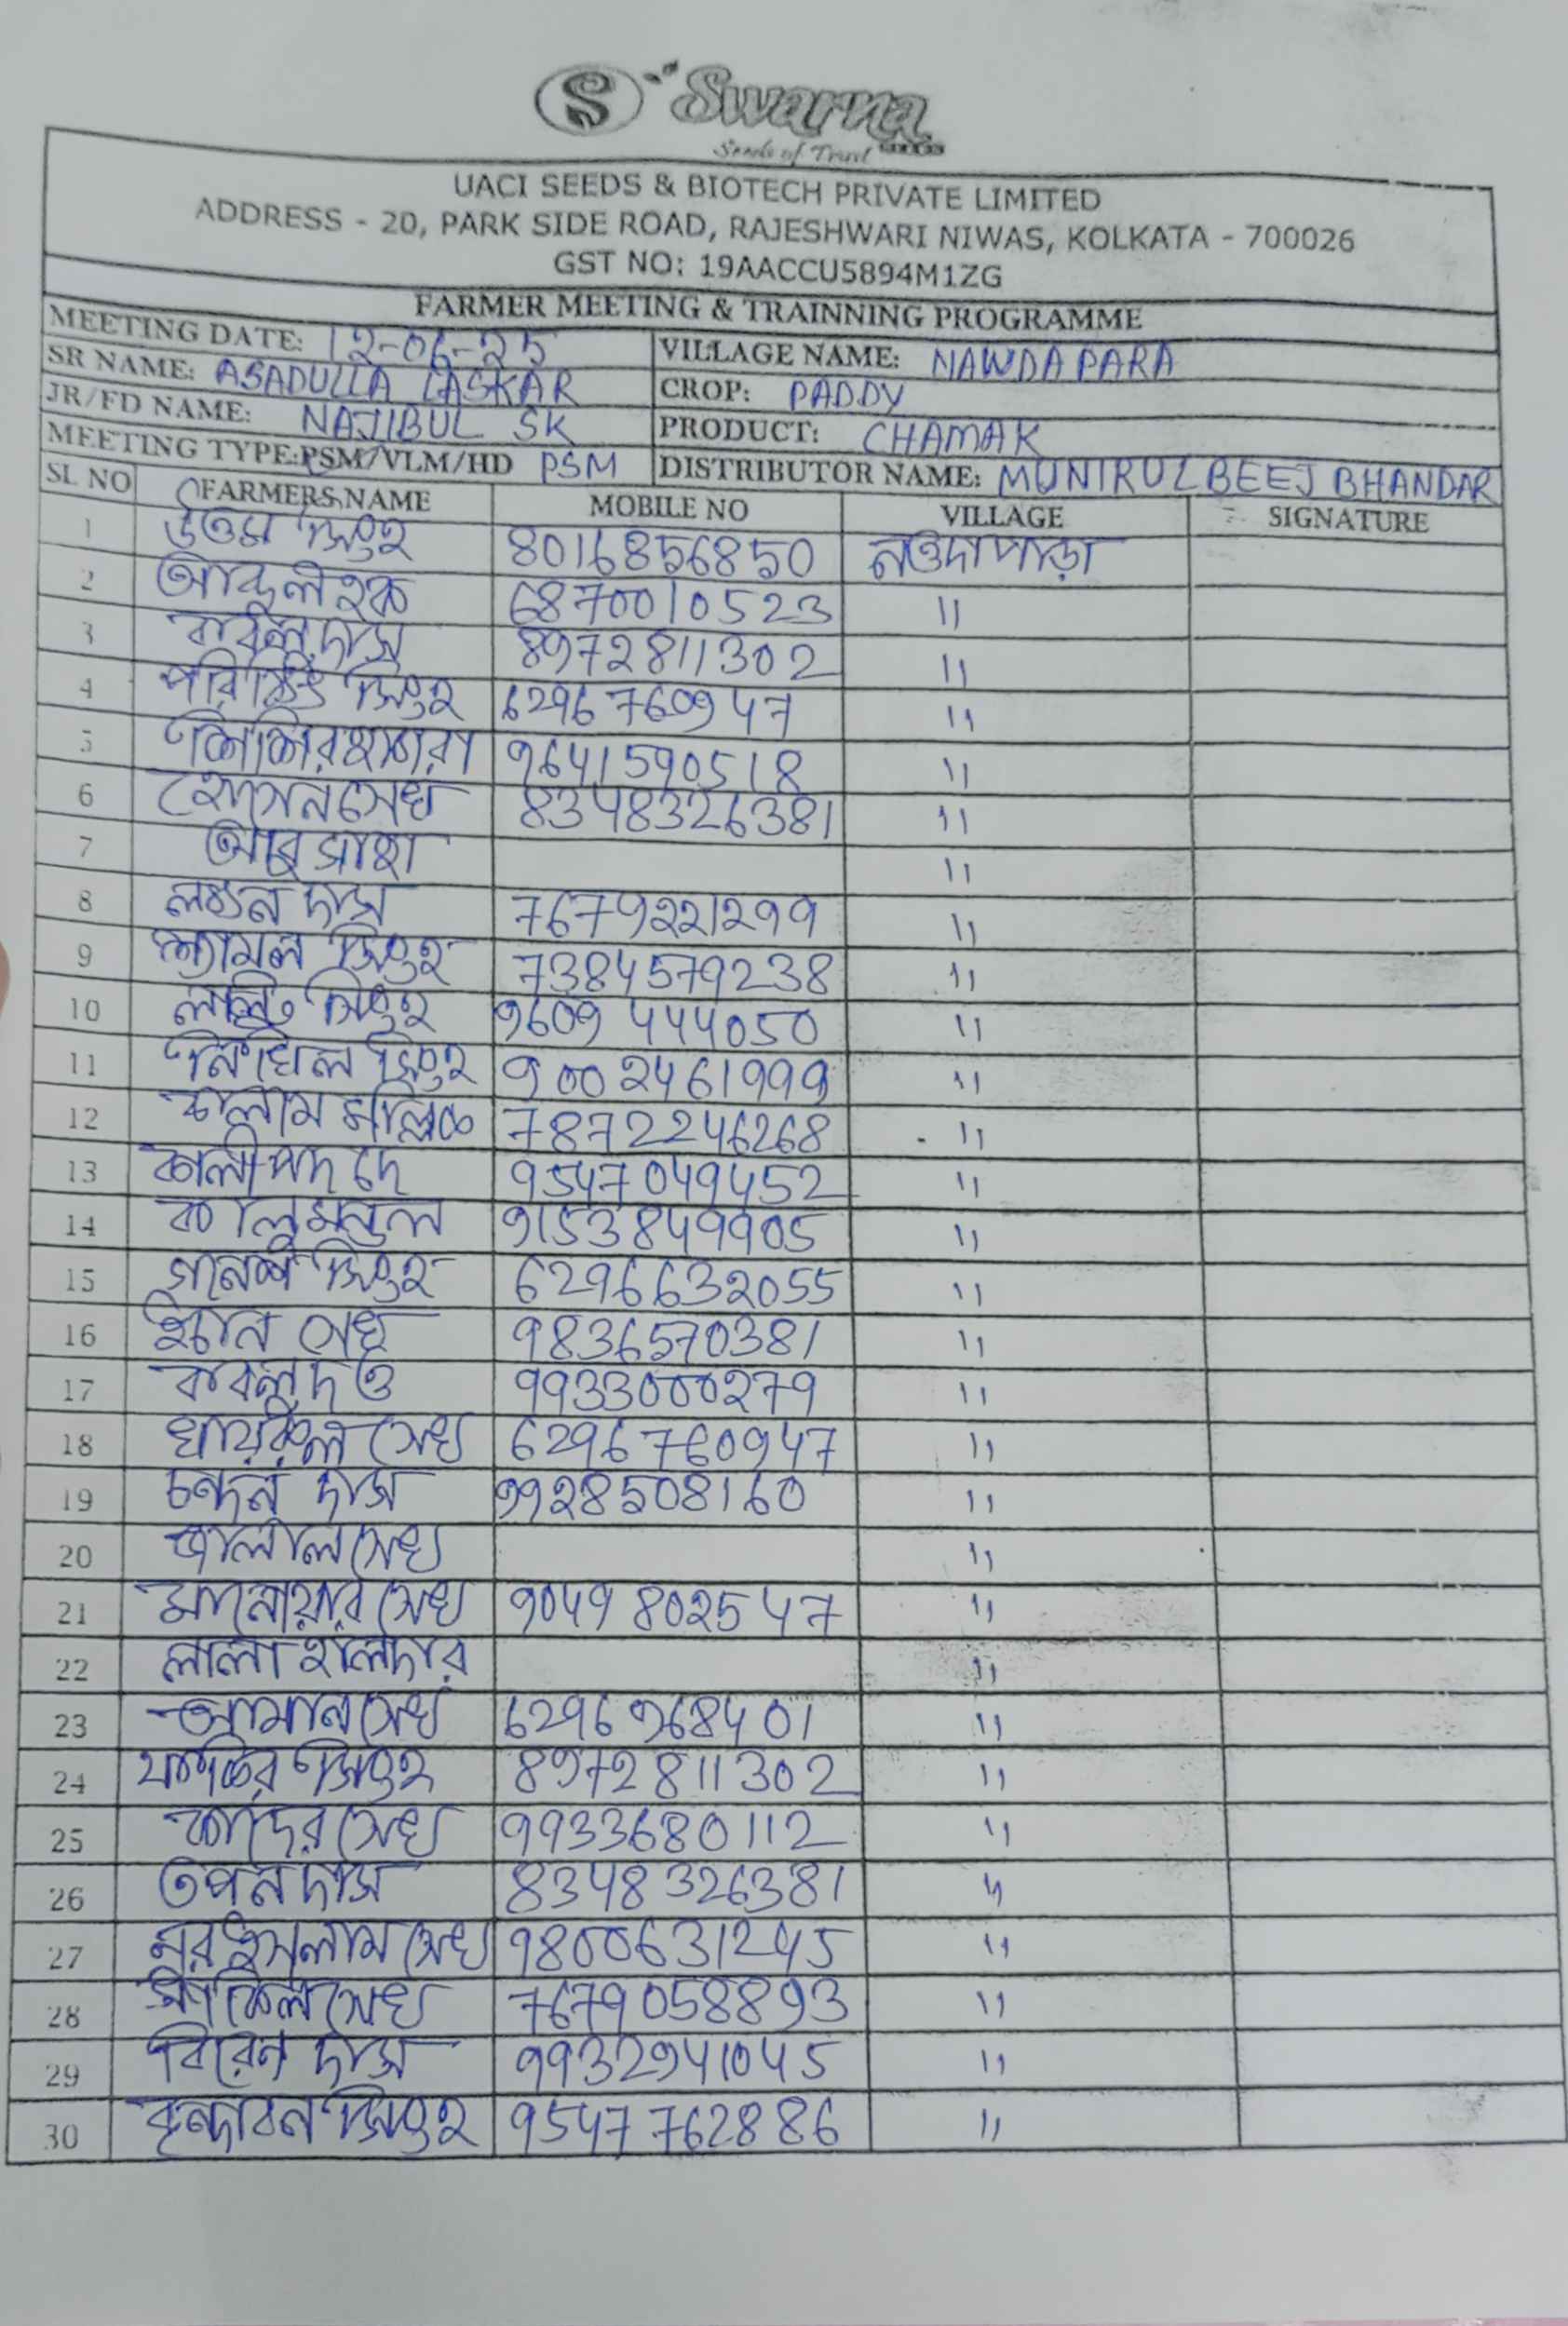 S Swarna
Seeds of Trust
UACI SEEDS & BIOTECH PRIVATE LIMITED
ADDRESS - 20, PARK SIDE ROAD, RAJESHWARI NIWAS, KOLKATA - 700026
GST NO: 19AACCU5894M1ZG
FARMER MEETING & TRAINNING PROGRAMME
MEETING DATE: 12-06-25 VILLAGE NAME: NAWDA PARA
SR NAME: ASADULLA LASKAR CROP: PADDY
JR/FD NAME: NAJIBUL SK PRODUCT: CHAMAK
MEETING TYPE:PSM/VLM/HD PSM DISTRIBUTOR NAME: MUNIRUL BEEJ BHANDAR
SL NO FARMERS NAME MOBILE NO VILLAGE SIGNATURE
1 উত্তম 8016856850 নওদাপাড়া
2 আব্দুল হক 6870010523 11
3 বাবলু দাস 8972811302 11
4 6296760947 11
5 শিশির হাজরা 9641590518 11
6 হোসেন সেখ 8348326381 11
7 আবু সাহা 11
8 লক্ষন দাস 7679221299 11
9 শ্যামল 7384579238 11
10 9609444050 11
11 নিখিল 9002461999 11
12 কালাম মল্লিক 7872246268 11
13 কালীপদ দে 9547049452 11
14 9153849905 11
15 গনেশ 6296632055 11
16 সেখ 9836570381 11
17 বাবলু দত্ত 9933000279 11
18 খায়রুল সেখ 6296760947 11
19 চন্দন দাস 9928508160 11
20 জালাল সেখ 11
21 মানোয়ার সেখ 9049802547 11
22 লালা হালদার 11
23 আমান সেখ 6296968401 11
24 ফকির 8972811302 11
25 কাদের সেখ 9933680112 11
26 তপন দাস 8348326381 11
27 নুর ইসলাম সেখ 9800631245 11
28 সেখ 7679058893 11
29 বিরেন দাস 9932941045 11
30 বৃন্দাবন 9547762886 11